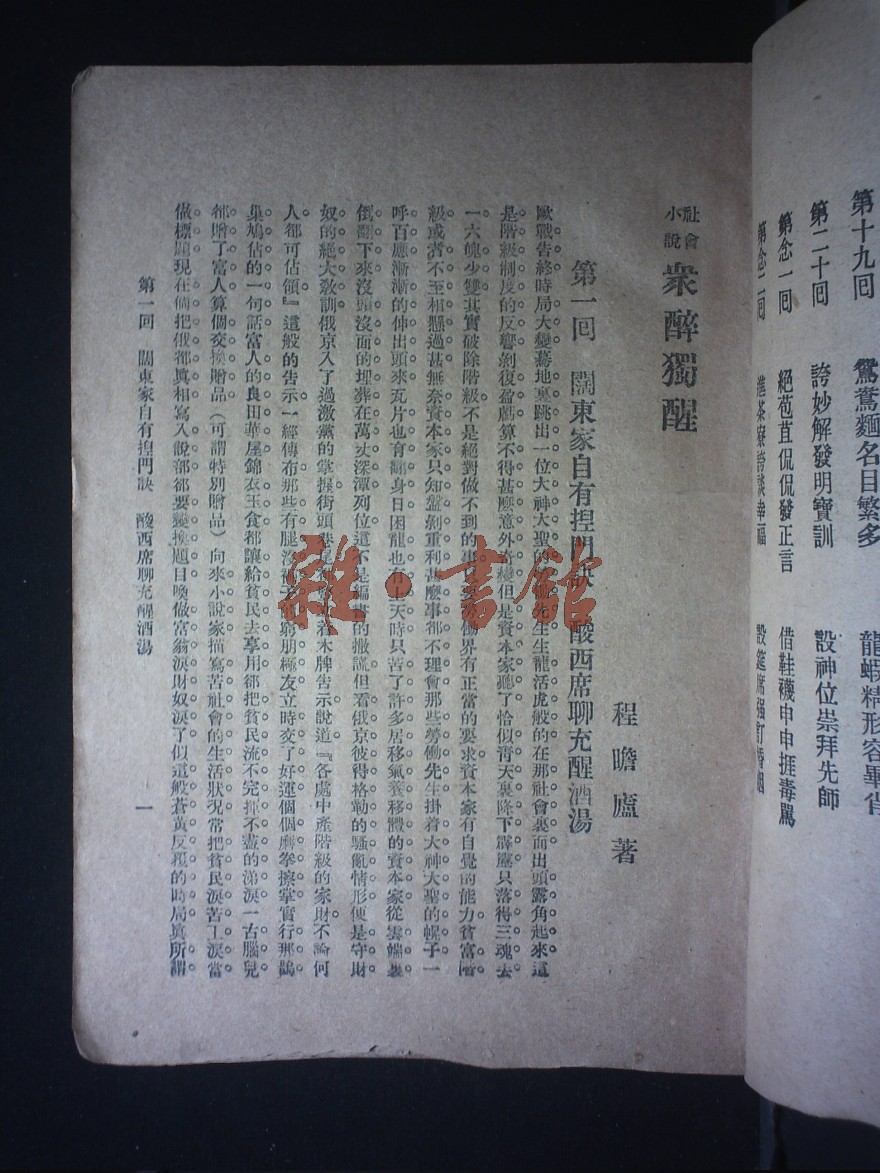 第十九回 鴛鴦麵名目繁多 龍蝦精形容畢肖
第二十回 誇妙解發明寶訓 設神位崇拜先師
第念一回 絕苞苴侃侃發正言 借鞋襪申申捱毒罵
第念二回 進茶寮誇談幸福 設筵席強訂婚姻
社會小說 衆醉獨醒
程瞻廬著
第一回 闊東家自有揑門訣 酸西席聊充醒酒湯
歐戰告終時局大變驀地裏跳出一位大神大聖的勞働先生生龍活虎般的在那社會裏面出頭露角起來這
是階級制度的反響剝復盈虧算不得甚麽意外奇變但是資本家聽了恰似靑天裏降下霹靂只落得三魂去
一六魄少雙其實破除階級不是絕對做不到的事只要勞働界有正當的要求資本家有自覺的能力貧富階
級或者不至相懸過甚無奈資本家只知盤剝重利甚麽事都不理會那些勞働先生掛着大神大聖的幌子一
呼百應漸漸的伸出頭來瓦片也有翻身日困龍也有上天時只苦了許多居移氣養移體的資本家從雲端裏
倒翻下來沒頭沒面的埋葬在萬丈深潭列位這不是編書的撒謊但看俄京彼得格勒的騷亂情形便是守財
奴的絕大敎訓俄京入了過激黨的掌握街頭巷尾都 着木牌吿示說道『各處中產階級的家財不論何
人都可佔領』這般的吿示一經傳布那些有腿沒褲子的窮朋極友立時交了好運個個磨拳擦掌實行那鵲
巢鳩佔的一句話富人的良田華屋錦衣玉食都讓給貧民去享用卻把貧民流不完揮不盡的涕淚一古腦兒
都贈了富人算個交換贈品（可謂特別贈品）向來小說家描寫苦社會的生活狀況常把貧民淚苦工淚當
做標題現在倘把俄都眞相寫入說部卻要變換題目喚做富翁淚財奴淚了似這般蒼黃反覆的時局眞所謂
第一回 闊東家自有揑門訣 酸西席聊充醒酒湯
一
雜·書館